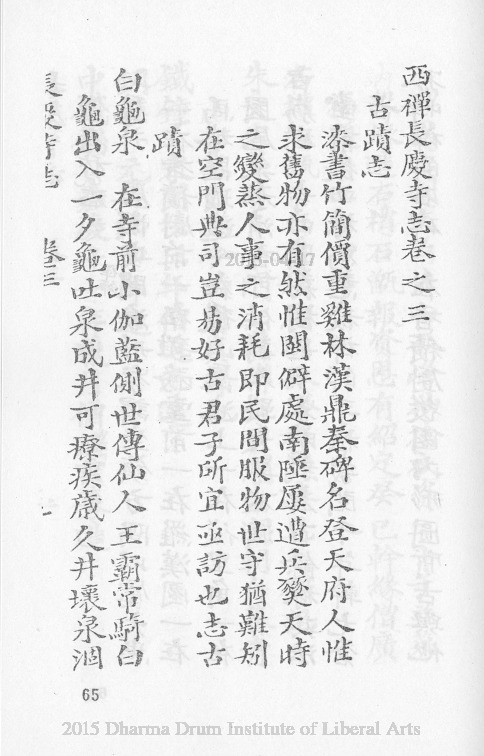 西禪長慶寺志卷之三
古蹟志
漆書竹簡價重雞林漢鼎秦碑名登天府人惟
求舊物亦有然惟閩僻處南陲屢遭兵燹天時
之變蒸人事之消耗即民間服物世守猶難矧
在空門典司豈易好古君子所宜亟訪也志古
蹟
白龜泉 在寺前小伽藍側世傳仙人王霸常騎白
龜出入一夕龜吐泉成井可療疾歲久井壞泉涸
長慶寺志 卷三
65
2015 Dharma Drum Institute of Liberal Arts